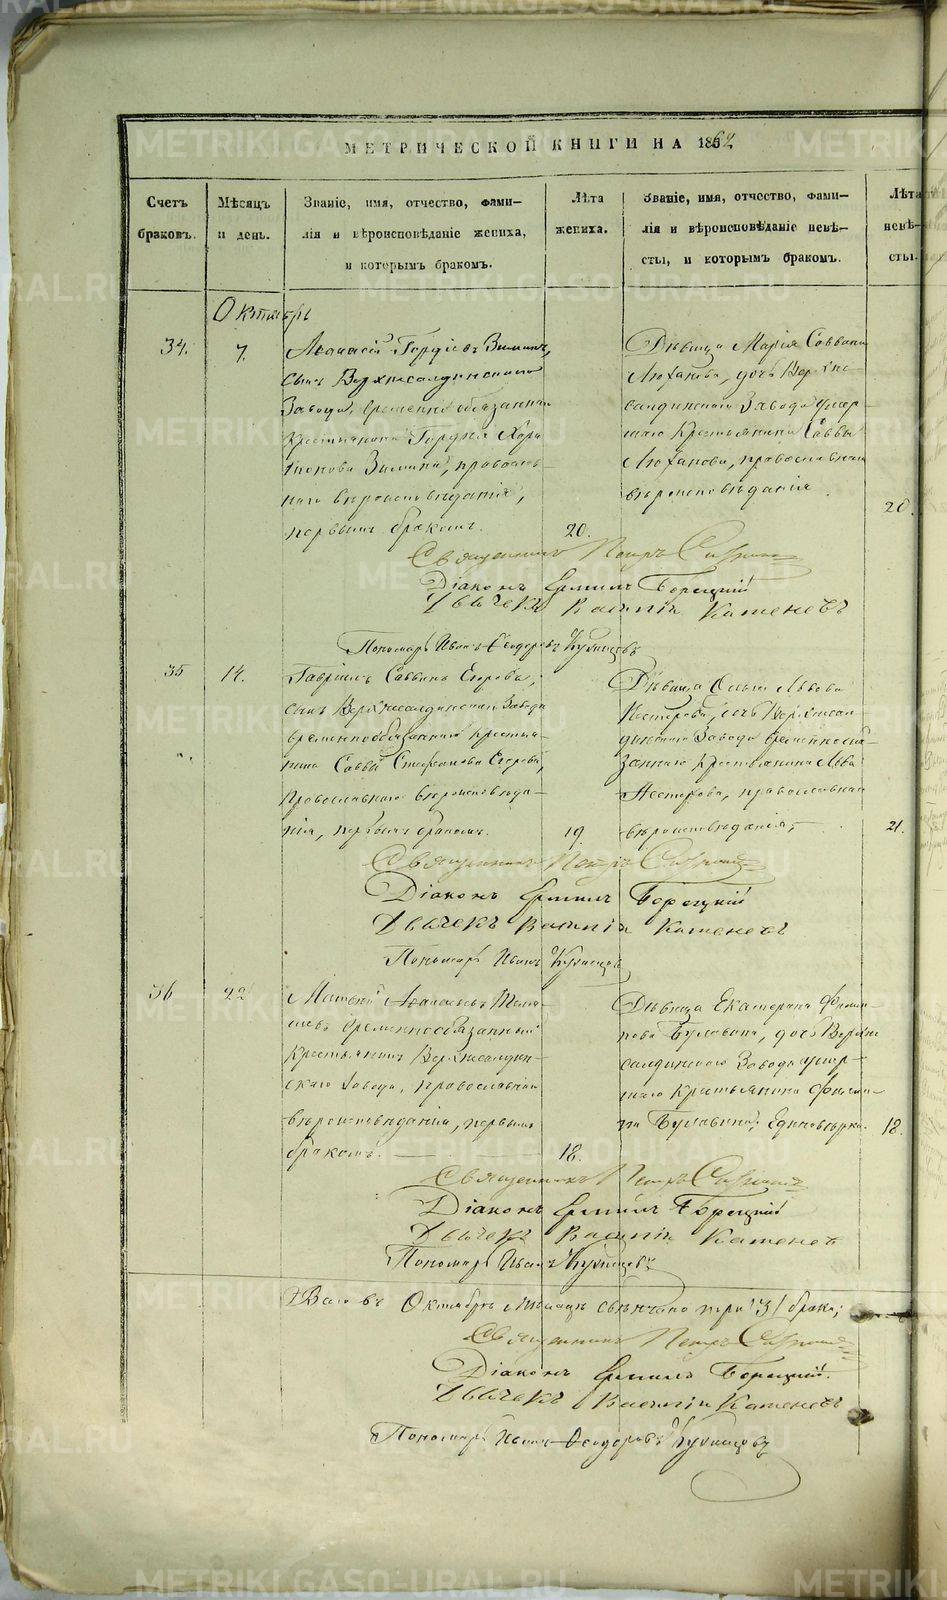 МЕТРИЧЕСКОЙ КНИГИ НА 1862
Счетъ браковъ.
Мѣсяцъ и день.
Званіе, имя, отчество, фами-
лія и вѣроисповѣданіе жениха,
и которымъ бракомъ.
Лѣта жениха.
Званіе, имя, отчество, фами-
лія и вѣроисповѣданіе невѣ-
сты, и которымъ бракомъ.
Лѣта невѣ-
сты.
Октябрь
34.
7.
Аѳанасій Гордіевъ Зиминъ,
сынъ Верхнесалдинскаго
Завода, временно обязаннаго
крестьянина Гордія Хари
тонова Зимина, православ-
наго вѣроисповѣданія,
первымъ бракомъ.
20.
Дѣвица Марія Саввина
Люханова, дочь Верхне-
салдинскаго Завода умер-
шаго Крестьянина Саввы
Люханова, православнаго
вѣроисповѣданія.
20.
Священникъ Петръ
Діаконъ Ермилъ Борецкій
Дьячекъ Василій Каменевъ
Пономарь Иванъ Ѳеодоровъ Кузнецовъ
35
14.
Гавріилъ Саввинъ Егоровъ,
сынъ Верхнесалдинскаго Завода
временнообязаннаго крестья-
нина Саввы Стефанова Егорова,
Православнаго вѣроисповѣда-
нія, первымъ бракомъ.
19.
Дѣвица Ольга Львова
Нестерова, дочь Верхнесал-
динскаго Завода временнообя-
заннаго Крестьянина Льва
Нестерова, православнаго
вѣроисповѣданія,
21.
Священникъ Петръ
Діаконъ Ермилъ Борецкій
Дьячекъ Василій Каменевъ
Пономарь Иванъ Кузнецовъ
36
22
Матѳей Аѳанасьевъ
временнообязанный
Крестьянинъ Верхнесалдин-
скаго Завода, православнаго
вѣроисповѣданія, первымъ
бракомъ.
18.
Дѣвица Екатерина Филип-
пова Булавина, дочь Верхне
салдинскаго Завода умер-
шаго Крестьянина Филип-
па Булавина,
18.
Священникъ Петръ
Діаконъ Ермилъ Борецкій
Дьячекъ Василій Каменевъ
Пономарь Иванъ Кузнецовъ
Всего въ Октябрѣ мѣсяцѣ свѣнчано три /3/ брака;
Священникъ Петръ
Діаконъ Ермилъ Борецкій.
Дьячекъ Василій Каменевъ
Пономарь Иванъ Ѳеодоровъ Кузнецовъ
METRIKI.GASO-URAL.RU